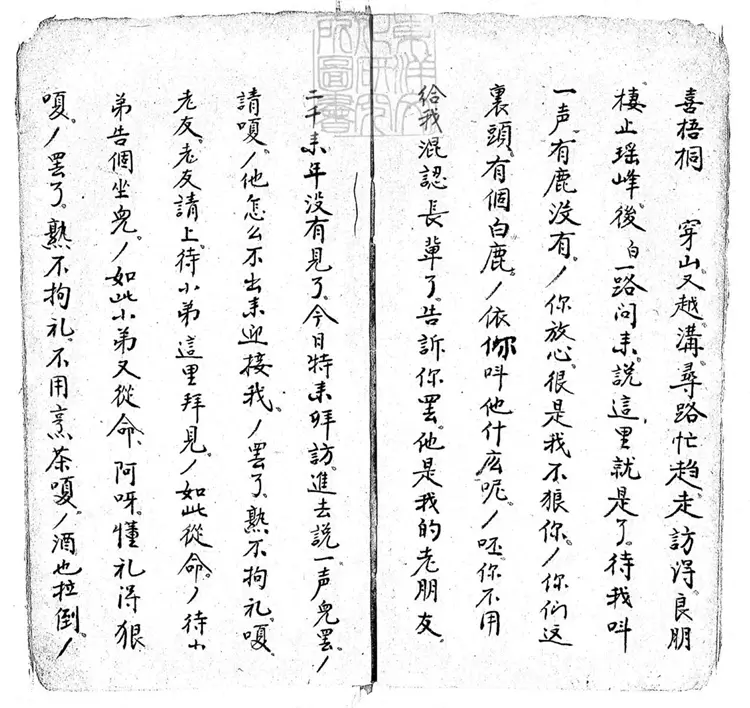 喜梧桐　穿山又越溝。尋路忙趋走。訪得良朋
棲止瑶峰。後白一路问来。說這里就是了。待我叫
一声。有鹿没有。/你放心。很是我不狠你。/你们这
裏頭。有個白鹿。/依你叫他什庅呢。/呸。你不用
给我混認長輩了。告訴你罢。他是我的老朋友。
二千来年没有見了。今日特来拜訪。進去說一声皃罢。/
請嗄。/他怎么不出来迎接我。/罢了。熟不拘礼。嗄
老友。老友請上。待小弟這里拜見。/如此從命。/待小
弟告個坐皃。/如此小弟又從命。阿呀。懂礼得狠
嗄。/罢了。熟不拘礼。不用烹茶嗄。/酒也拉倒。/
東洋文化研究所圖書